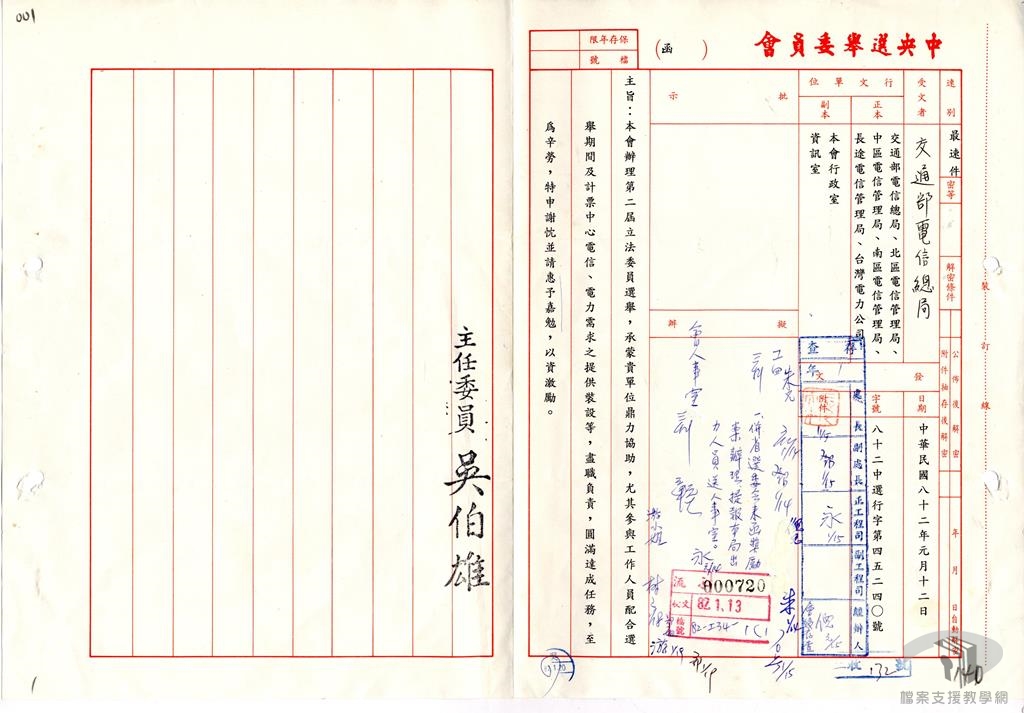 001
中央選舉委員會
（函）
保存年限
檔號
速別
最速件
密等
解密條件
公佈後解密
附件抽存後解密
年 月 日自動解密
裝訂線
受文者
交通部電信總局
行文單位
正本
交通部電信總局、北區電信管理局、
中區電信管理局、南區電信管理局、
長途電信管理局、台灣電力公司
副本
本會行政室
資訊室
發文
日期
中華民國八十二年元月十二日
字號
八十二中選行字第四五二四〇號
附件
批示
擬辦
主旨：本會辦理第二屆立法委員選舉，承蒙貴單位鼎力協助，尤其參與工作人員配合選
舉期間及計票中心電信、電力需求之提供裝設等，盡職負責，圓滿達成任務，至
為辛勞，特申謝忱並請惠予嘉勉，以資激勵。
主任委員 吳伯雄
存查
處長
副處長
正工程司
副工程司
經辦人
永 1/15
一、併省選委會來函獎勵
案辦理，提報本局出
力人員送人事室。
會人事室
000720
收文
82.1.13
檔號
82-I34-
132號
140
檔案支援教學網